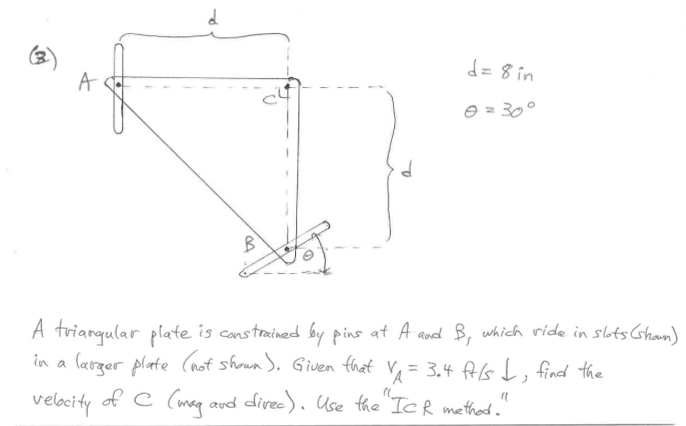 d
(3)
A
C
d = 8 in
θ = 30°
d
B
θ
A triangular plate is constrained by pins at A and B, which ride in slots (shown)
in a larger plate (not shown). Given that V_A = 3.4 ft/s ↓, find the
velocity of C (mag and direc). Use the "ICR method."